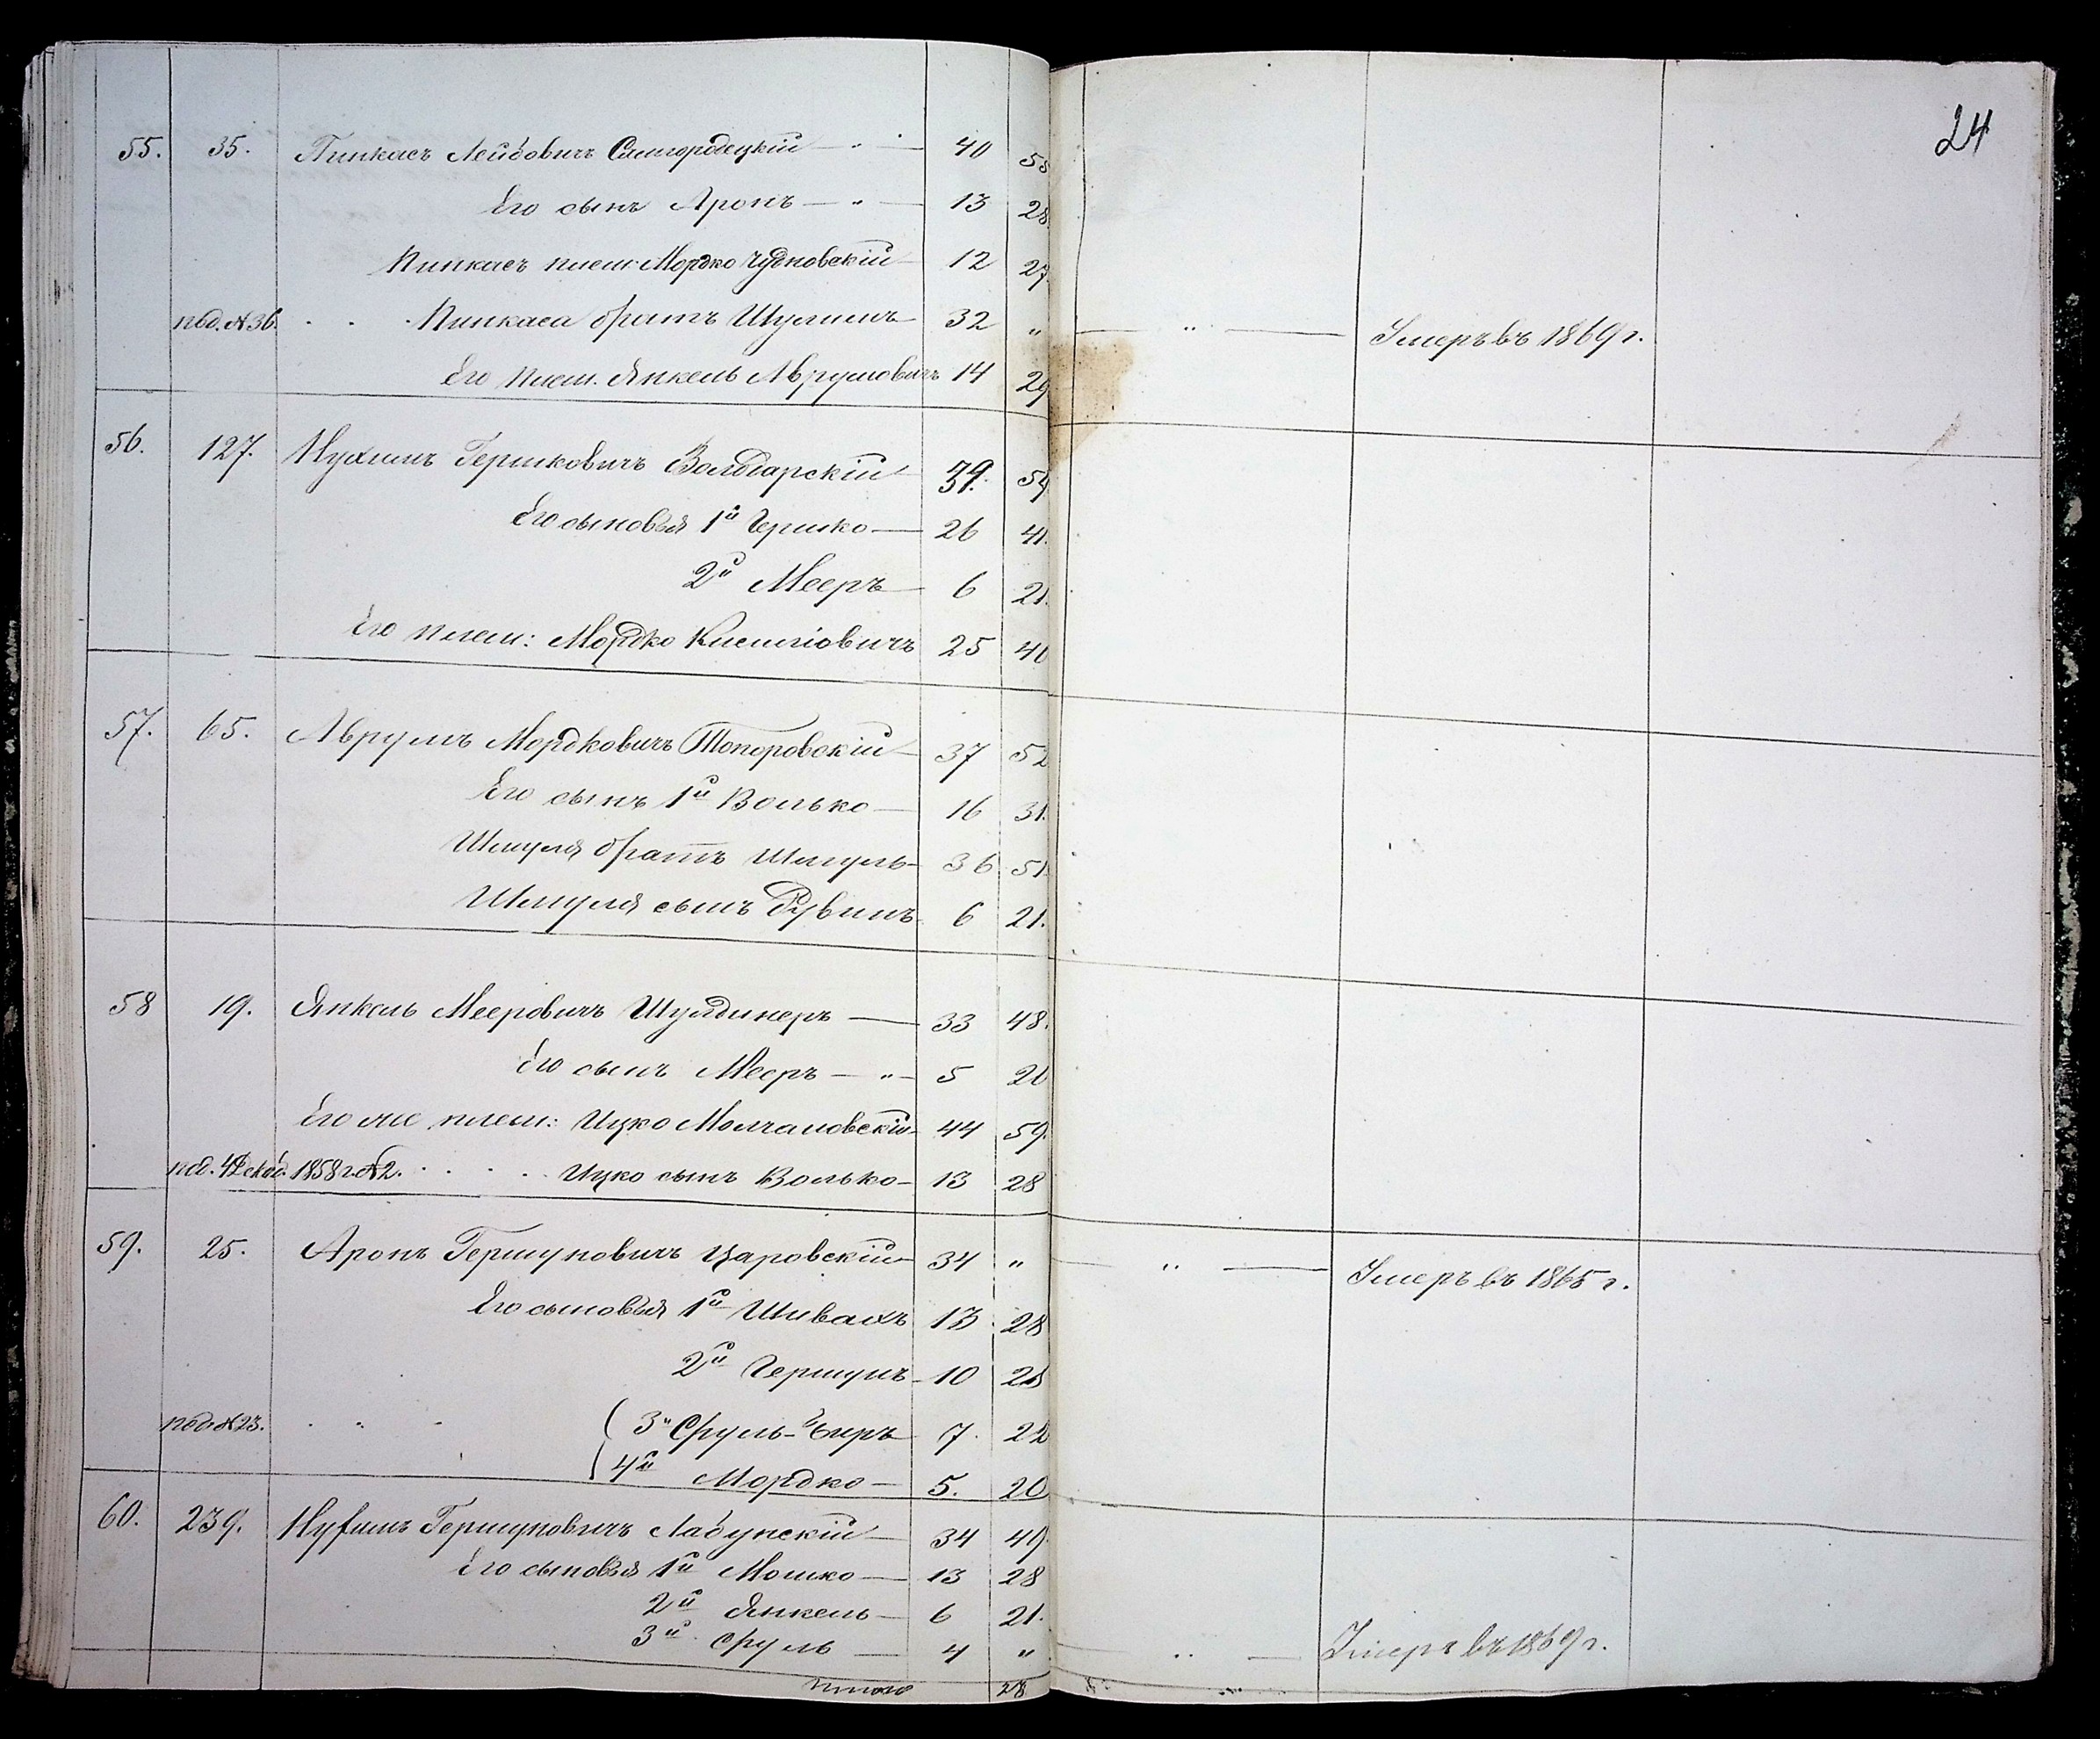 24
55. 35. Пинкасъ Лейбовичъ Смигородецкій — „ — 40 55
Его сынъ Аронъ — „ — 13 28.
Пинкасъ плем: Мордко Чудновскій — 12 27.
под. № 36. . . . Пинкаса братъ Шулимъ — 32 „ — „ — Умеръ въ 1869 г.
Его плем. Янкель Аврумовичъ 14 29
56. 127. Нухимъ Гершковичъ Володарскій 39. 54
Его сыновья 1й Гершко — 26 41.
2й Мееръ — 6 21.
Его плем: Мордко Киселіовичъ 25 40
57. 65. Аврумъ Мордковичъ Топоровскій — 37 52
Его сынъ 1й Волько — 16 31.
Шмуля братъ Шмуль — 36. 51.
Шмуля сынъ Рувинъ 6 21.
58 19. Янкель Мееровичъ Шулдинеръ — 33 48.
Его сынъ Мееръ — „ — 5 20
Его же плем: Ицко Молчановскій — 44 59.
под. 4 Декаб. 1858 г. № 2. . . . . . Ицко сынъ Волько — 13 28
59. 25. Аронъ Гершуновичъ Царовскій — 34 „ — „ — Умеръ въ 1865 г.
Его сыновья 1й Шивахъ 13 28
2й Гершунъ — 10 25
под. № 23. . „ . ( 3й Сруль-Беръ 7. 22
( 4й Мордко — 5. 20
60. 239. Нухимъ Гершуновичъ Лабунскій — 34 49.
Его сыновья 1й Мошко — 13 28
2й Янкель — 6 21.
3й Сруль — 4 „ „ — Умеръ въ 1869 г.
Итого 28